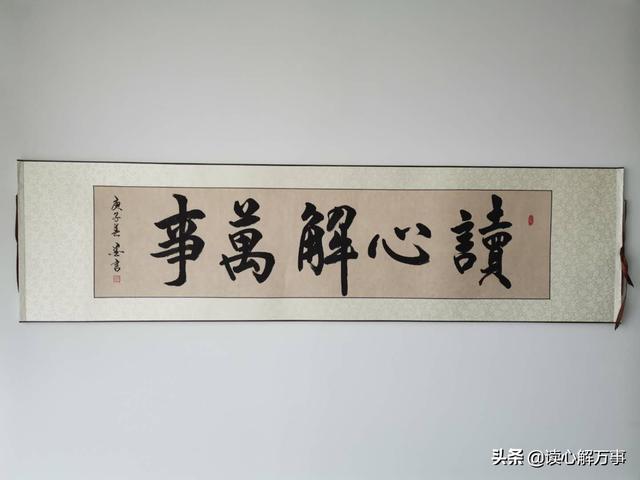 讀心解萬事
庚子
書
头条 @读心解万事